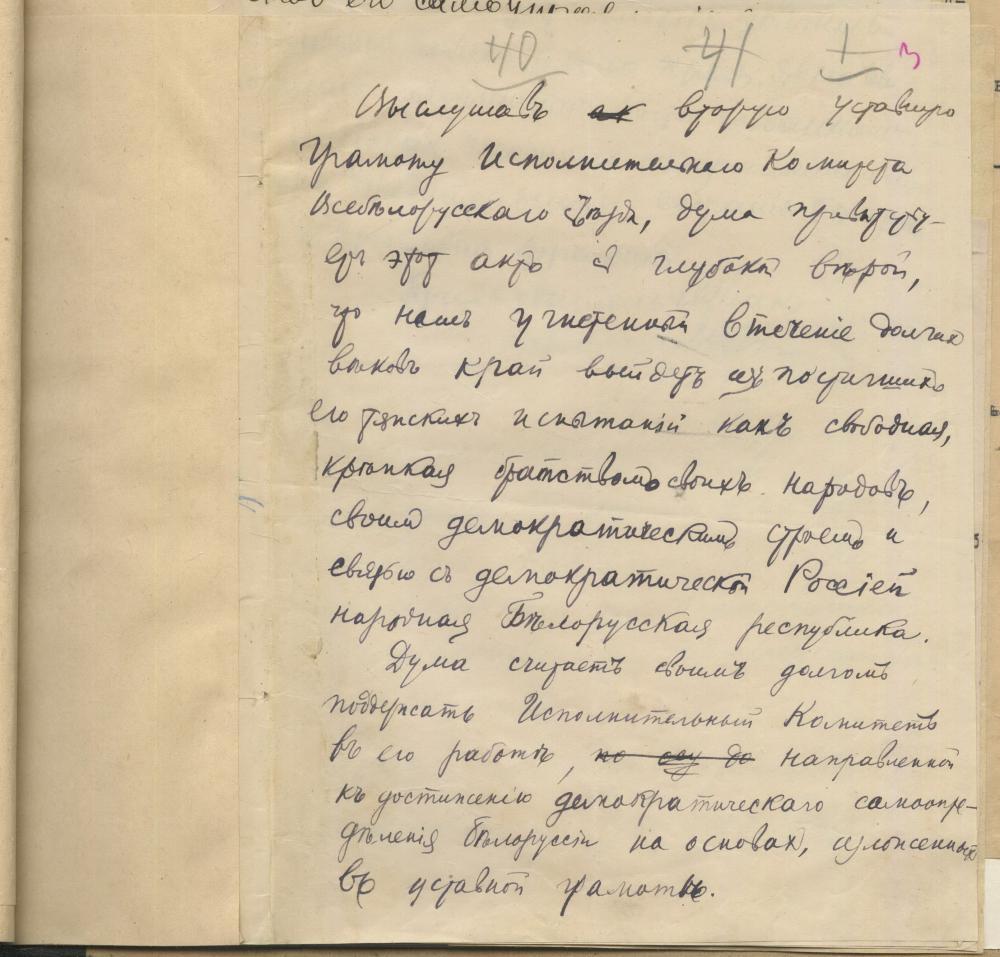 40 41 1 3
Выслушавъ ак вторую уставную
грамоту Исполнительнаго Комитета
Всебѣлорусскаго Съѣзда, дума привѣтству-
етъ этотъ актъ съ глубокой вѣрой,
что нашъ угнетенный втеченіе долгихъ
вѣковъ край выйдетъ изъ постигшихъ
его тяжкихъ испытаній какъ свободная,
крѣпкая братствомъ своихъ народовъ,
своимъ демократическимъ строемъ и
связью съ демократической Россіей
народная Бѣлорусская республика.
Дума считаетъ своимъ долгомъ
поддержать Исполнительный Комитетъ
въ его работѣ, направленной
къ достиженію демократическаго самоопре-
дѣленія Бѣлоруссіи на основахъ, изложенныхъ
въ уставной грамотѣ.